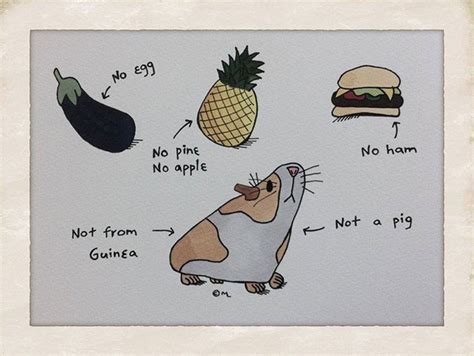 No egg
No pine
No apple
No ham
Not from
Guinea
Not a pig